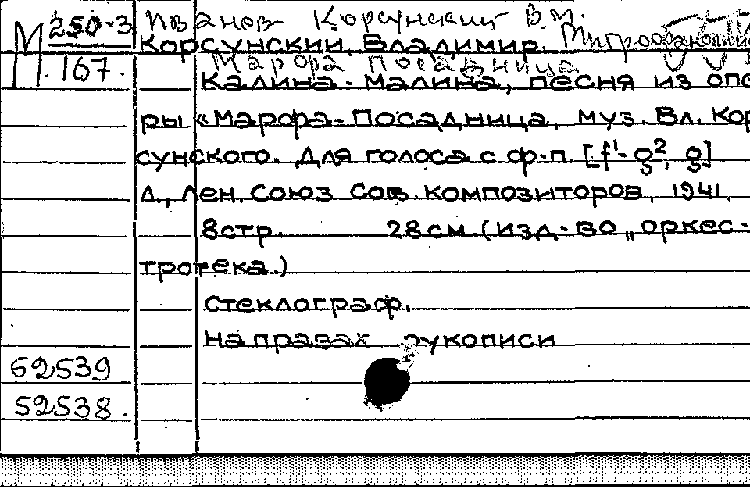 М 250-3 Иванов Корсунский В.
167. Корсунский, Владимир
Марфа Посадница
Калина-малина, песня из опе
ры «Марфа-Посадница, муз. Вл. Кор
сунского. Для голоса с ф-п. [f¹-g², g]
Л., Лен. Союз Сов. композиторов, 1941,
8 стр. 28 см. (изд-во „оркес-
тротека.)
Стеклограф.
На правах рукописи
62539
52538.